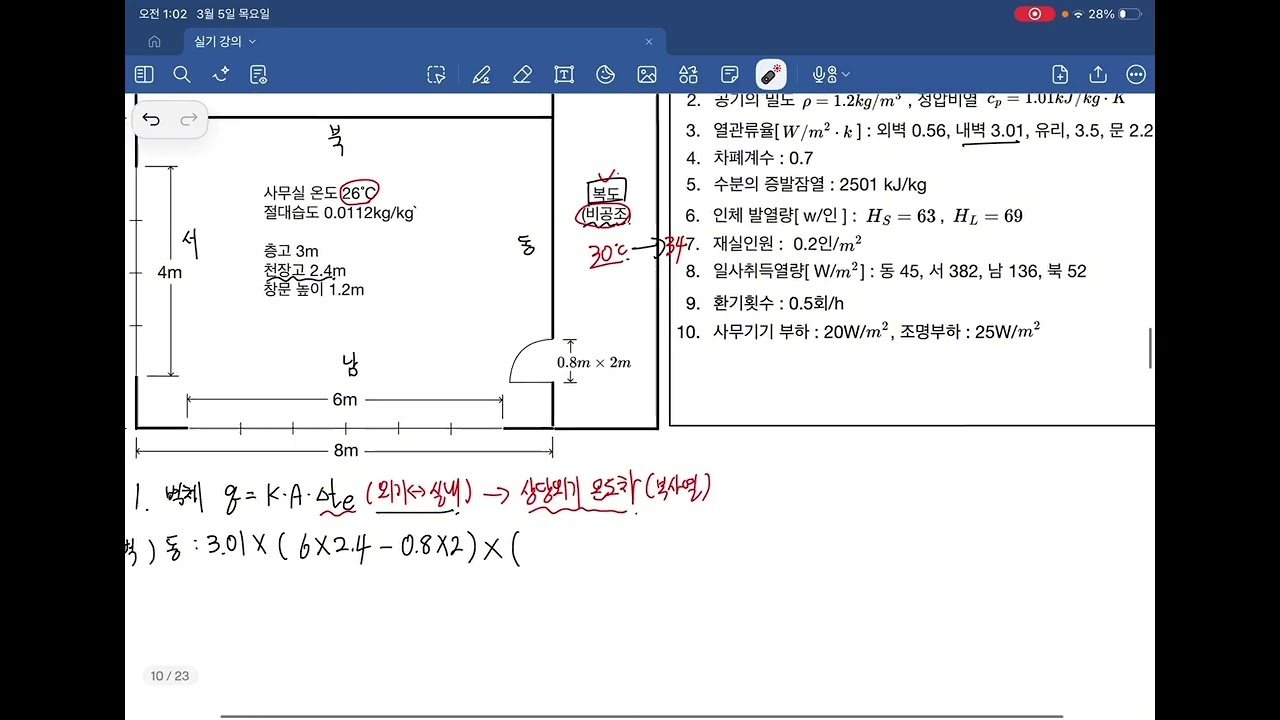 오전 1:02 3월 5일 목요일
28%
실기 강의
2. 공기의 밀도 ρ = 1.2kg/m³ , 정압비열 c_p = 1.01kJ/kg · K
북
3. 열관류율[W/m² · k] : 외벽 0.56, 내벽 3.01, 유리, 3.5, 문 2.2
사무실 온도 26°C
절대습도 0.0112kg/kg`
복도
(비공조)
4. 차폐계수 : 0.7
5. 수분의 증발잠열 : 2501 kJ/kg
6. 인체 발열량[ w/인 ] : H_S = 63 , H_L = 69
서
동
30°C → 34
층고 3m
천장고 2.4m
창문 높이 1.2m
4m
7. 재실인원 : 0.2인/m²
8. 일사취득열량[ W/m² ] : 동 45, 서 382, 남 136, 북 52
9. 환기횟수 : 0.5회/h
10. 사무기기 부하 : 20W/m², 조명부하 : 25W/m²
남
0.8m × 2m
6m
8m
1. 벽체 q = K·A·Δte (외기↔실내) → 상당외기 온도차 (복사열)
벽) 동 : 3.01 × ( 6×2.4 - 0.8×2) × (
10 / 23